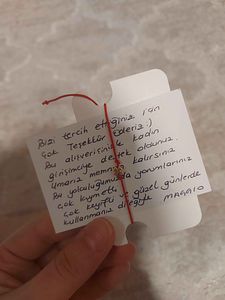 Bizi tercih ettiğiniz için
Çok Teşekkür ederiz :)
Bu alışverişinizle kadın
girişimciye destek oldunuz.
Umarız memnun kalırsınız
Bu yolculuğumuzda yorumlarınız
çok kıymetli
Çok keyifli ve güzel günlerde
kullanmanız dileğiyle MAGAIO